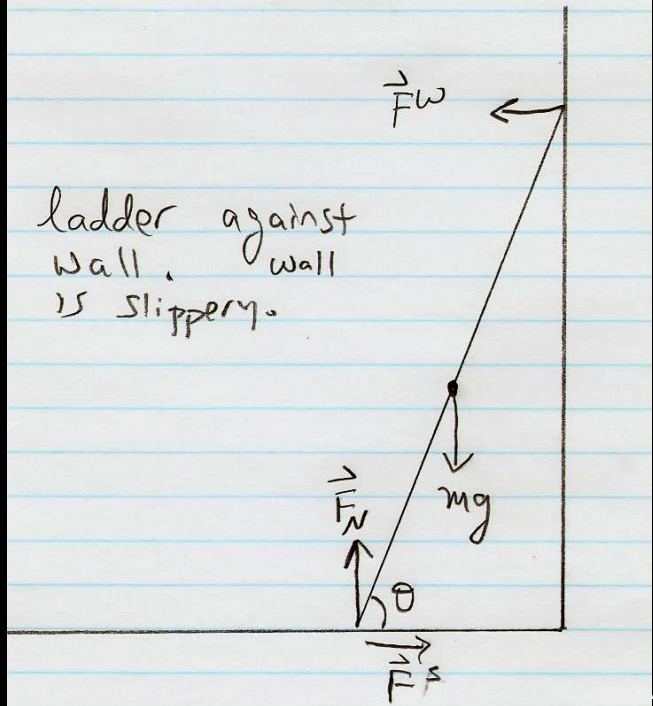 F^W
ladder against
wall. wall
is slippery.
mg
F_N
θ
F^s